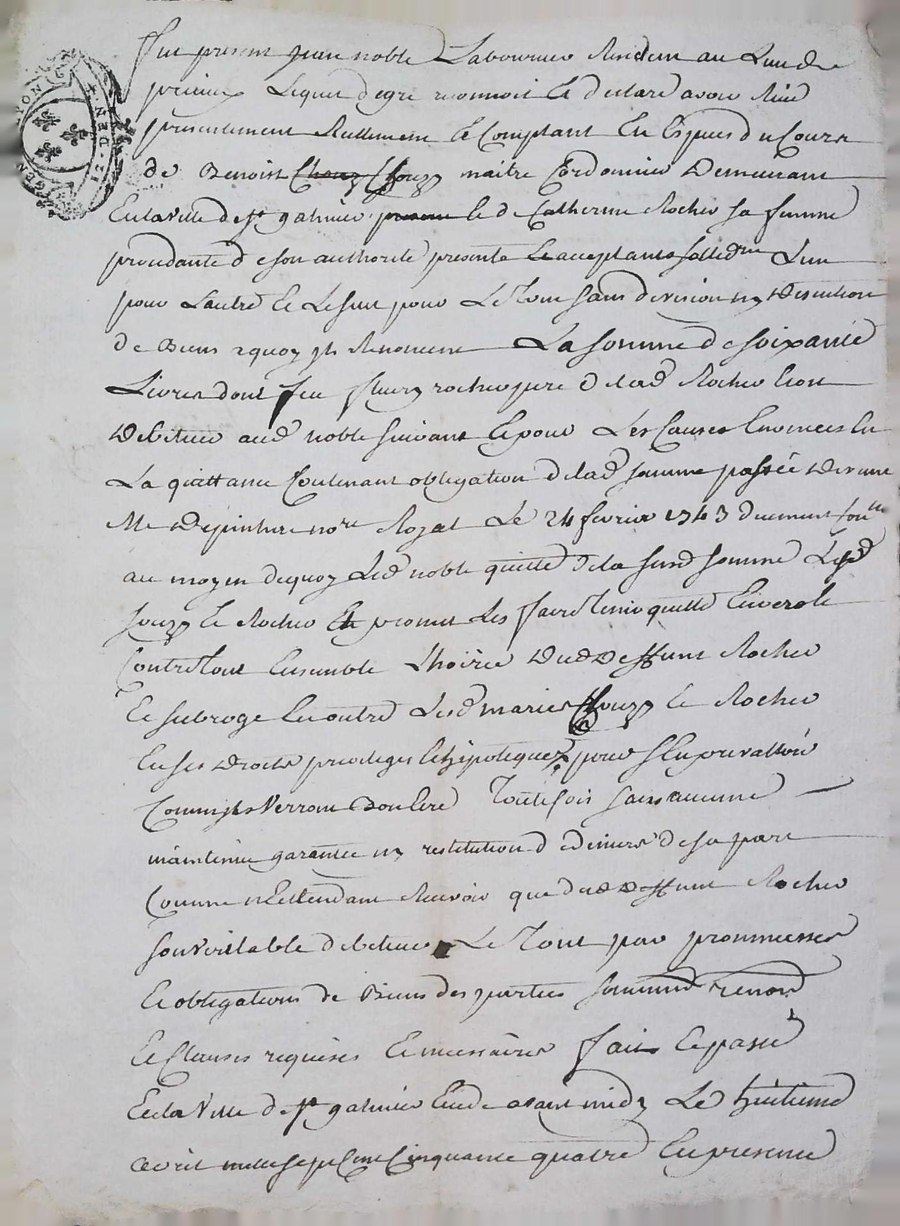 fut present jean noble Laboureur Resident au Lieu de
Lequel de gre reconnoit et declare avoir
presentement Reellement et Comptant En Especes du Cours
de Benoist Chouzy Chouzy maitre Cordonnier Demeurant
En la ville de St galmier et de Catherine Rocher sa femme
procedante de son authorité presents et acceptants sollidrmt L'un
pour L'autre et Le seul pour Le Tout sans division ny discution
de Biens a quoy ils Renoncent La somme de soixante
Livres dont feu fleury rocher pere de lad Rocher Etoit
Debiteur aud noble suivant et pour Les Causes Enoncées En
La quittance Contenant obligation de lad somme passée Devant
Me Depinhac nore Royal Le 24 fevrier 1743 duement
au moyen de quoy Led noble quitte de la susd somme Lesd
Chouzy et Rocher Et promet Les faire Tenir quitte Envers et
Contre Tout Ensemble L'hoirie Dud Deffunt Rocher
Et subroge En outre Lesd mariés Chouzy et Rocher
En ses Droits privileges et hipoteques pour s'En prevalloir
Comm'ils Verront Toutefois sans aucune
maintenue garantie ny restitution de deniers de sa part
Comme n'Entendant Recevoir que dud Deffunt Rocher
son Veritable debiteur Le Tout par prommesses
Et obligations de Biens des parties renond
Et Clauses requises Et necessaires fait Et passé
En la Ville de St galmier Etude avant midy Le huitieme
avril mille sept Cent Cinquante quatre En presence